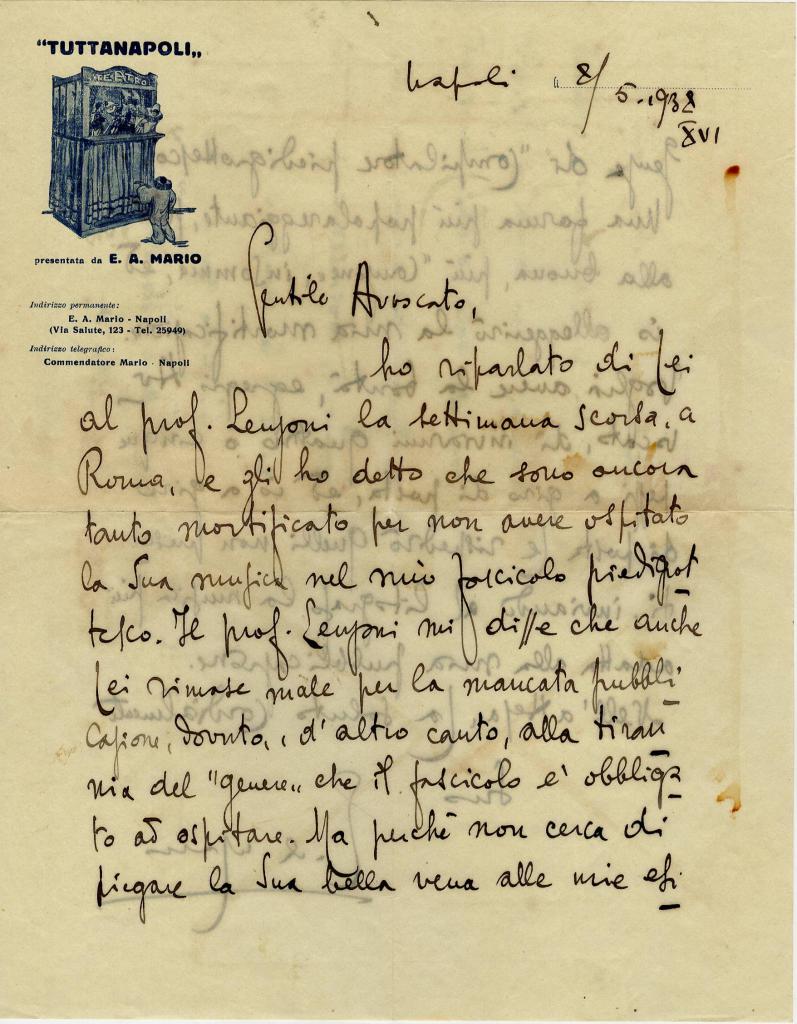 "TUTTANAPOLI„
TEATRO
presentata da E. A. MARIO
Indirizzo permanente:
E. A. Mario - Napoli
(Via Salute, 123 - Tel. 25949)
Indirizzo telegrafico:
Commendatore Mario - Napoli
Napoli 8/5.1938
XVI
Gentile Avvocato,
ho riparlato di Lei
al prof. la settimana scorsa, a
Roma, e gli ho detto che sono ancora
tanto mortificato per non avere ospitato
la Sua musica nel mio fascicolo piedigrot
tesco. Il prof. mi disse che anche
Lei rimase male per la mancata pubbli
cazione, dovuto, d'altro canto, alla tiran
nia del "genere„ che il fascicolo e' obbliga
to ad ospitare. Ma perchè non cerca di
piegare la Sua bella vena alle mie esi